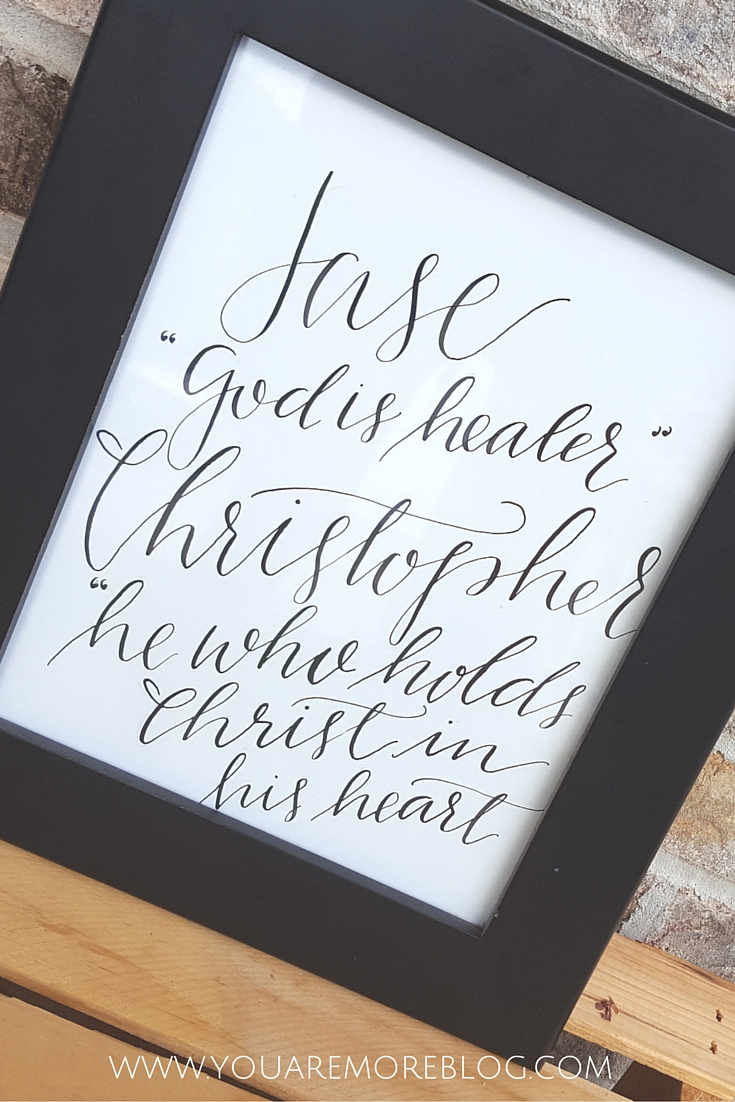 Jase
“God is healer”
Christopher
“he who holds
Christ in
his heart
WWW.YOUAREMOREBLOG.COM